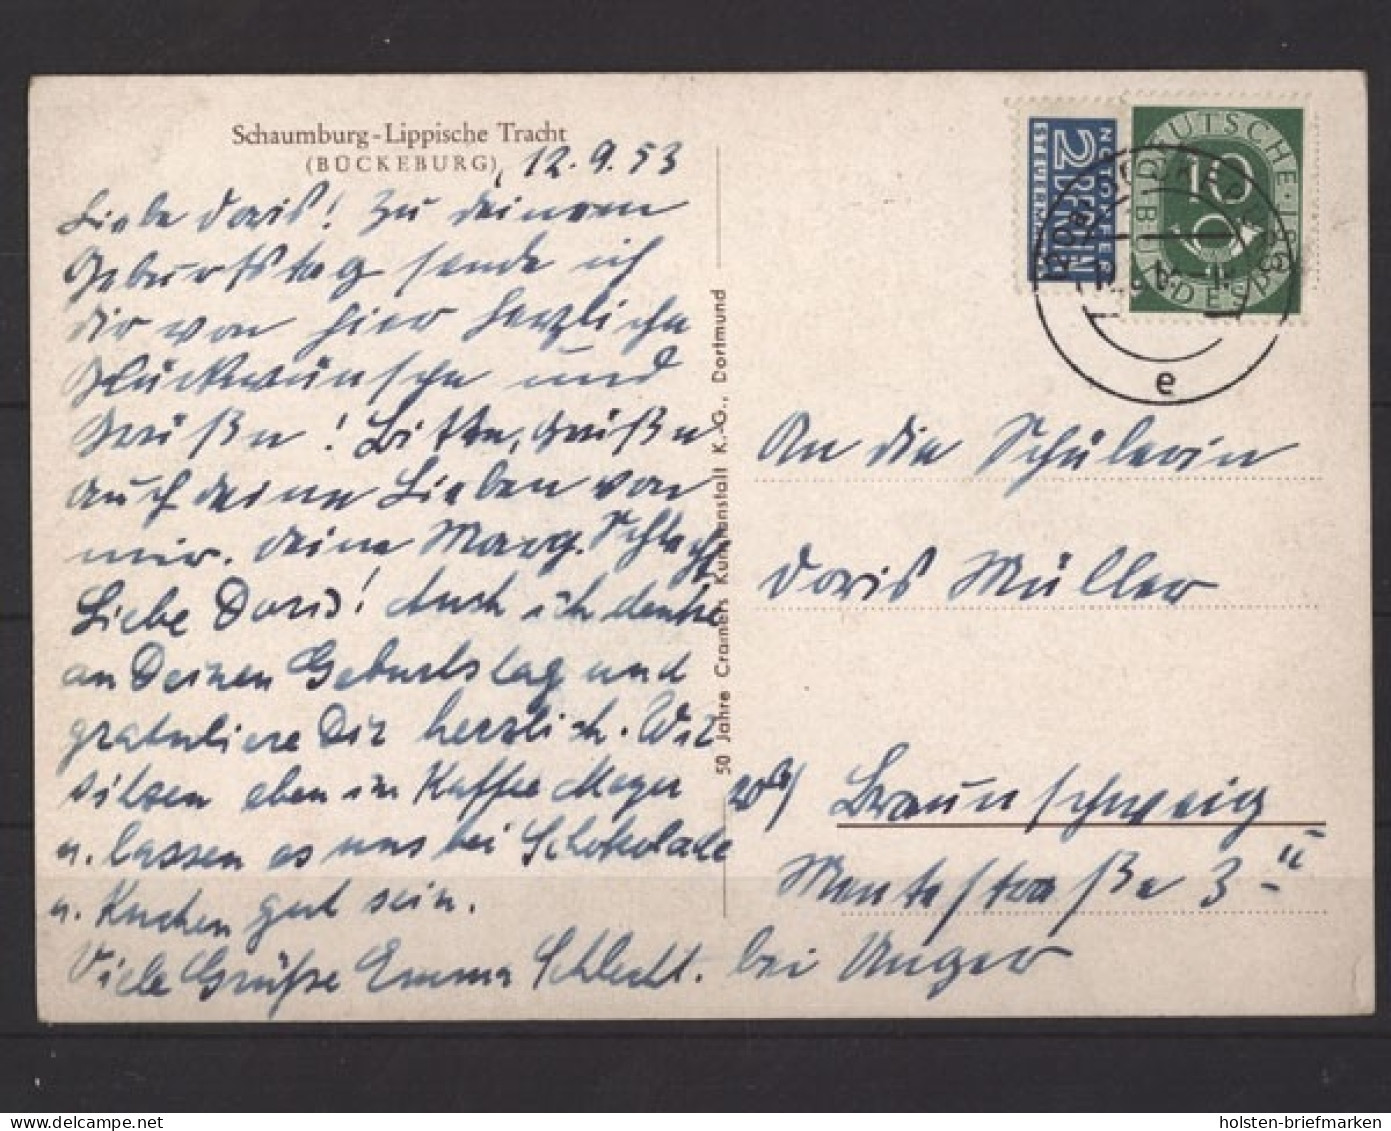 Schaumburg-Lippische Tracht
(BÜCKEBURG)
12.9.53
Liebe Doris! Zu deinem
Geburtstag sende ich
dir von hier herzliche
Glückwünsche und
Grüße! Bitte, grüße
auch deine Lieben von
mir. deine Marg. Schlecht
Liebe Doris! Auch ich denke
an Deinen Geburtstag und
gratuliere Dir herzlich. Wir
sitzen eben im Kaffee Meyer
u. lassen es uns bei Schokolade
u. Kuchen gut sein.
Viele Grüße Emma Schlecht.
50 Jahre Cramers Kunstanstalt K.-G., Dortmund
NOTOPFER
2 BERLIN
STEUERMARKE
DEUTSCHE BUNDESPOST
10
e
An die Schülerin
Doris Müller
Braunschweig
straße 3 II
bei Unger
holsten-briefmarken